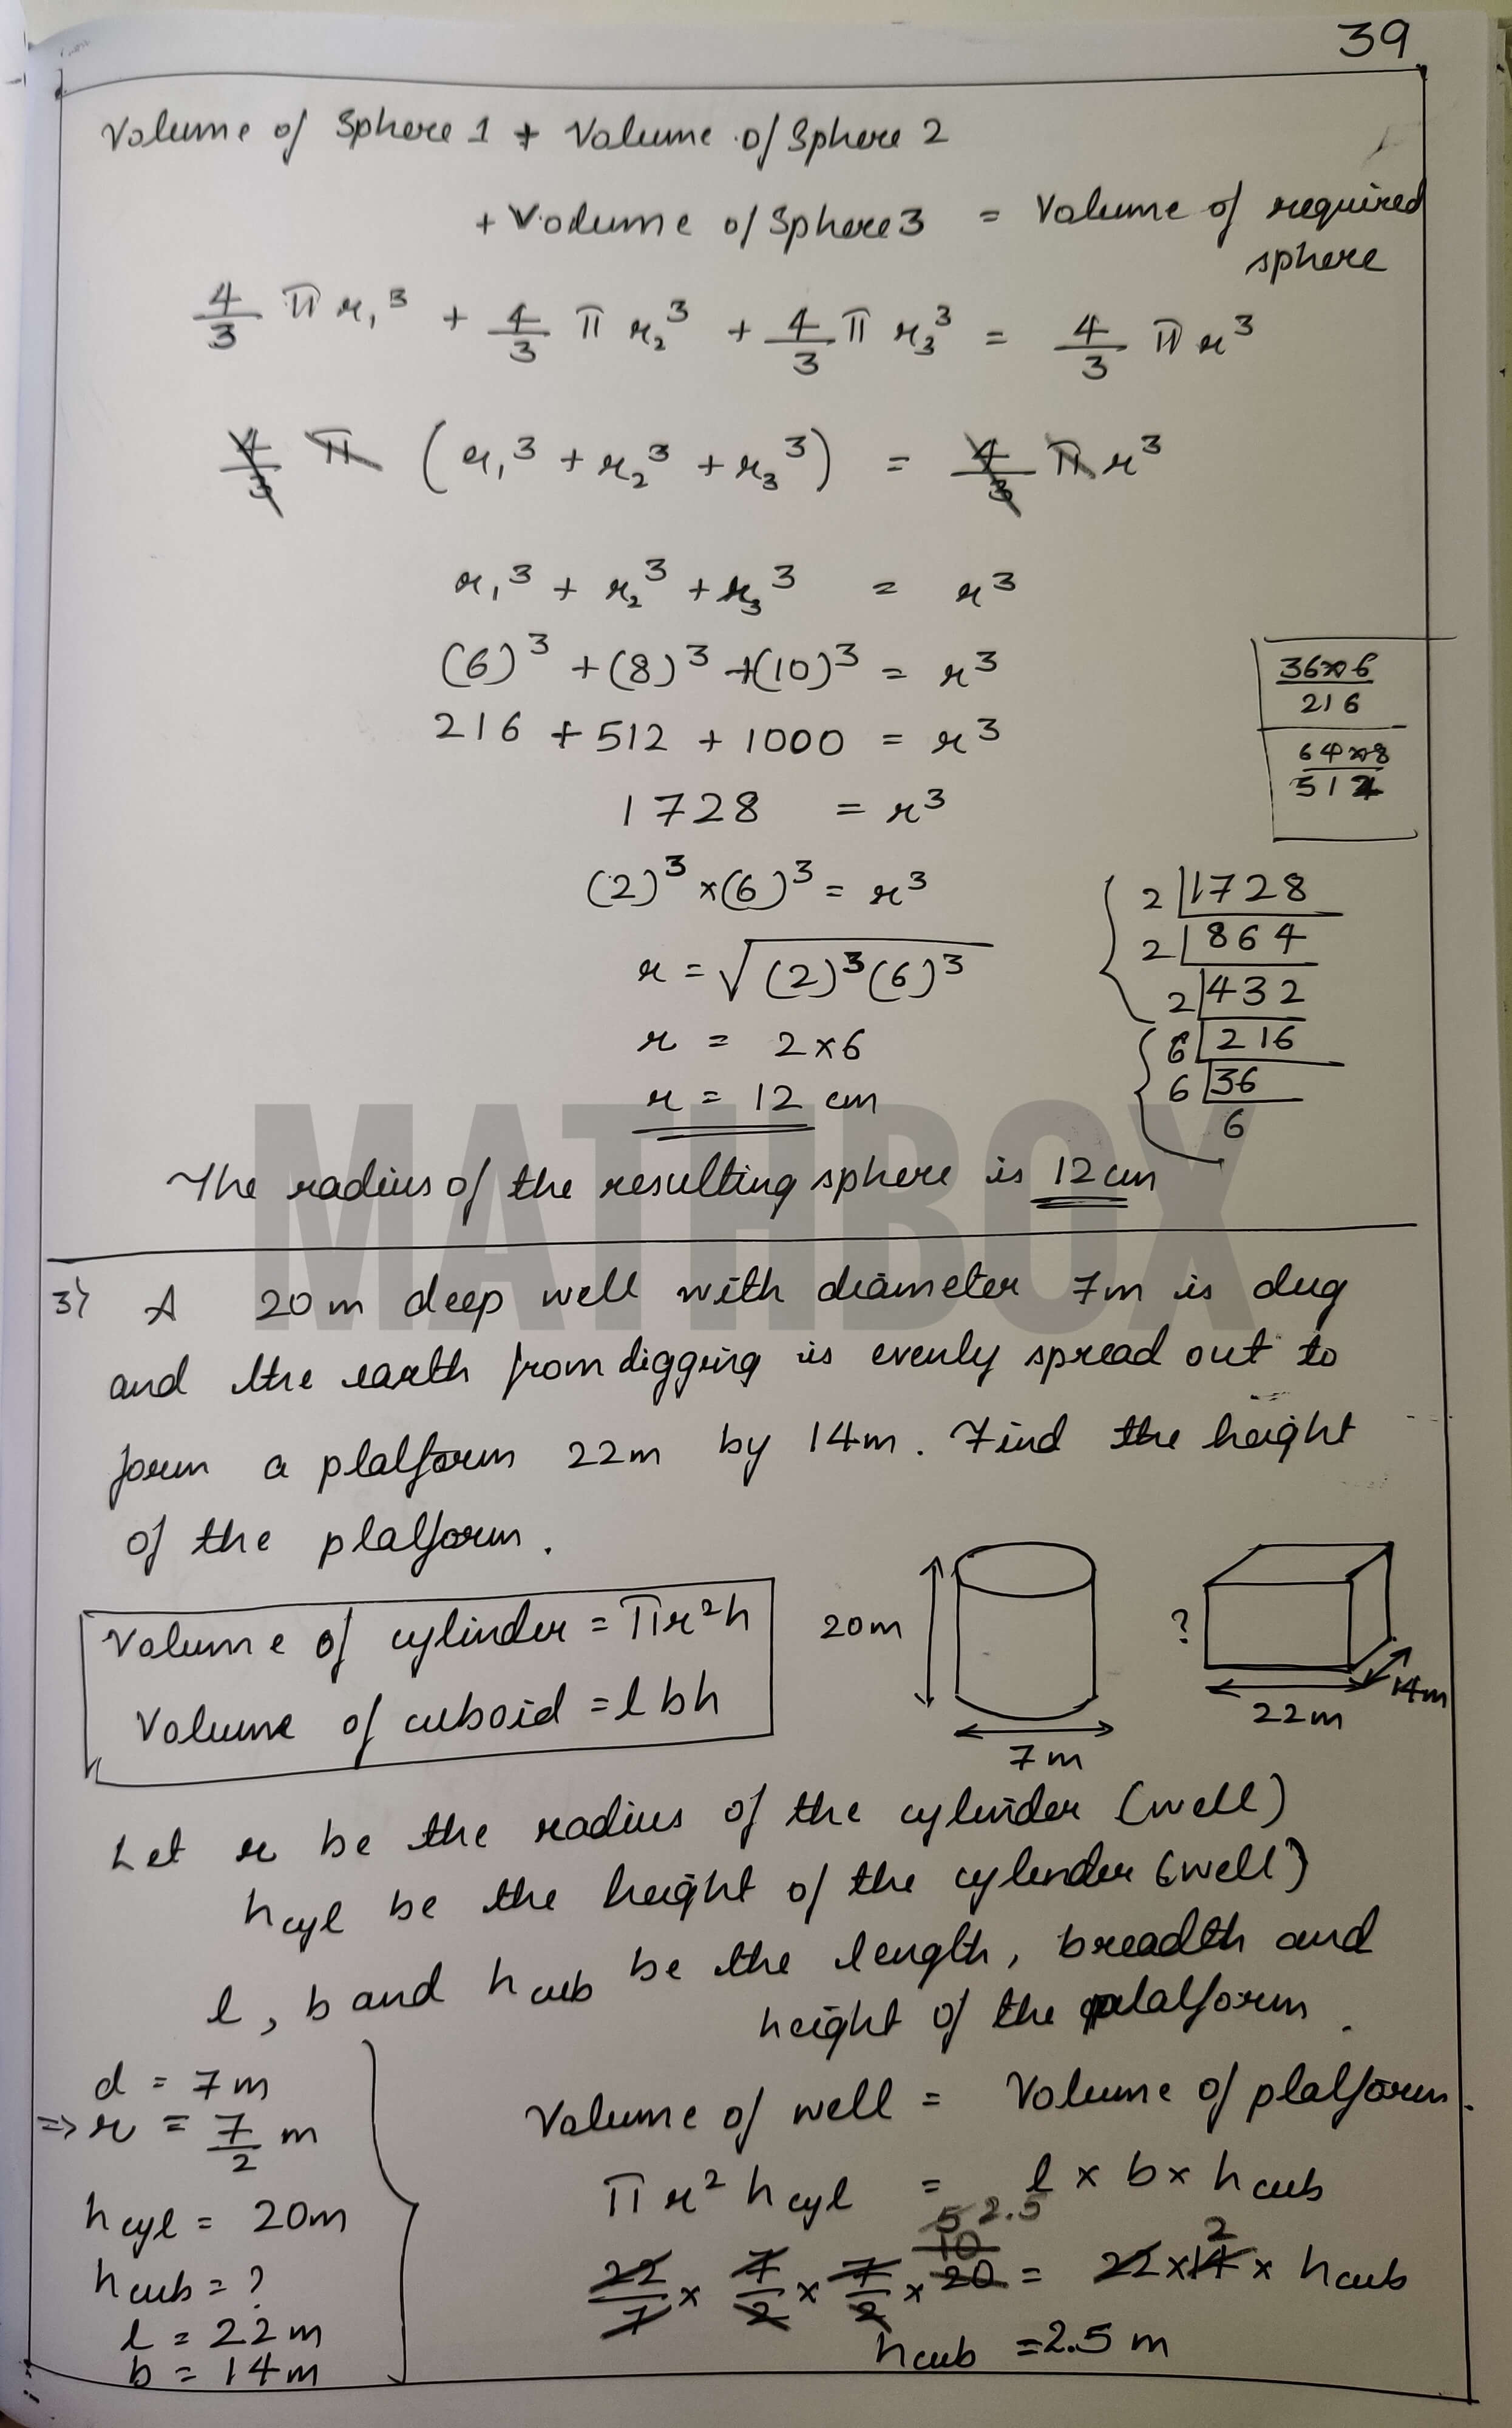 39
Volume of Sphere 1 + Volume of Sphere 2
+ Volume of Sphere 3 = Volume of required
sphere
4/3 π r₁³ + 4/3 π r₂³ + 4/3 π r₃³ = 4/3 π r³
4/3 π (r₁³ + r₂³ + r₃³) = 4/3 π r³
r₁³ + r₂³ + r₃³ = r³
(6)³ + (8)³ + (10)³ = r³
216 + 512 + 1000 = r³
1728 = r³
(2)³ × (6)³ = r³
r = √(2)³(6)³
r = 2×6
r = 12 cm
36×6
216
64×8
512
2 | 1728
2 | 864
2 | 432
6 | 216
6 | 36
6
The radius of the resulting sphere is 12 cm
MATHBOX
3) A 20m deep well with diameter 7m is dug
and the earth from digging is evenly spread out to
form a platform 22m by 14m. Find the height
of the platform.
Volume of cylinder = πr²h
Volume of cuboid = lbh
20m
7m
?
22m
14m
Let r be the radius of the cylinder (well)
hcyl be the height of the cylinder (well)
l, b and hcub be the length, breadth and
height of the platform.
d = 7m
=> r = 7/2 m
hcyl = 20m
hcub = ?
l = 22m
b = 14m
Volume of well = Volume of platform.
π r² hcyl = l × b × hcub
5 2.5
10 2
22/7 × 7/2 × 7/2 × 20 = 22 × 14 × hcub
hcub = 2.5 m